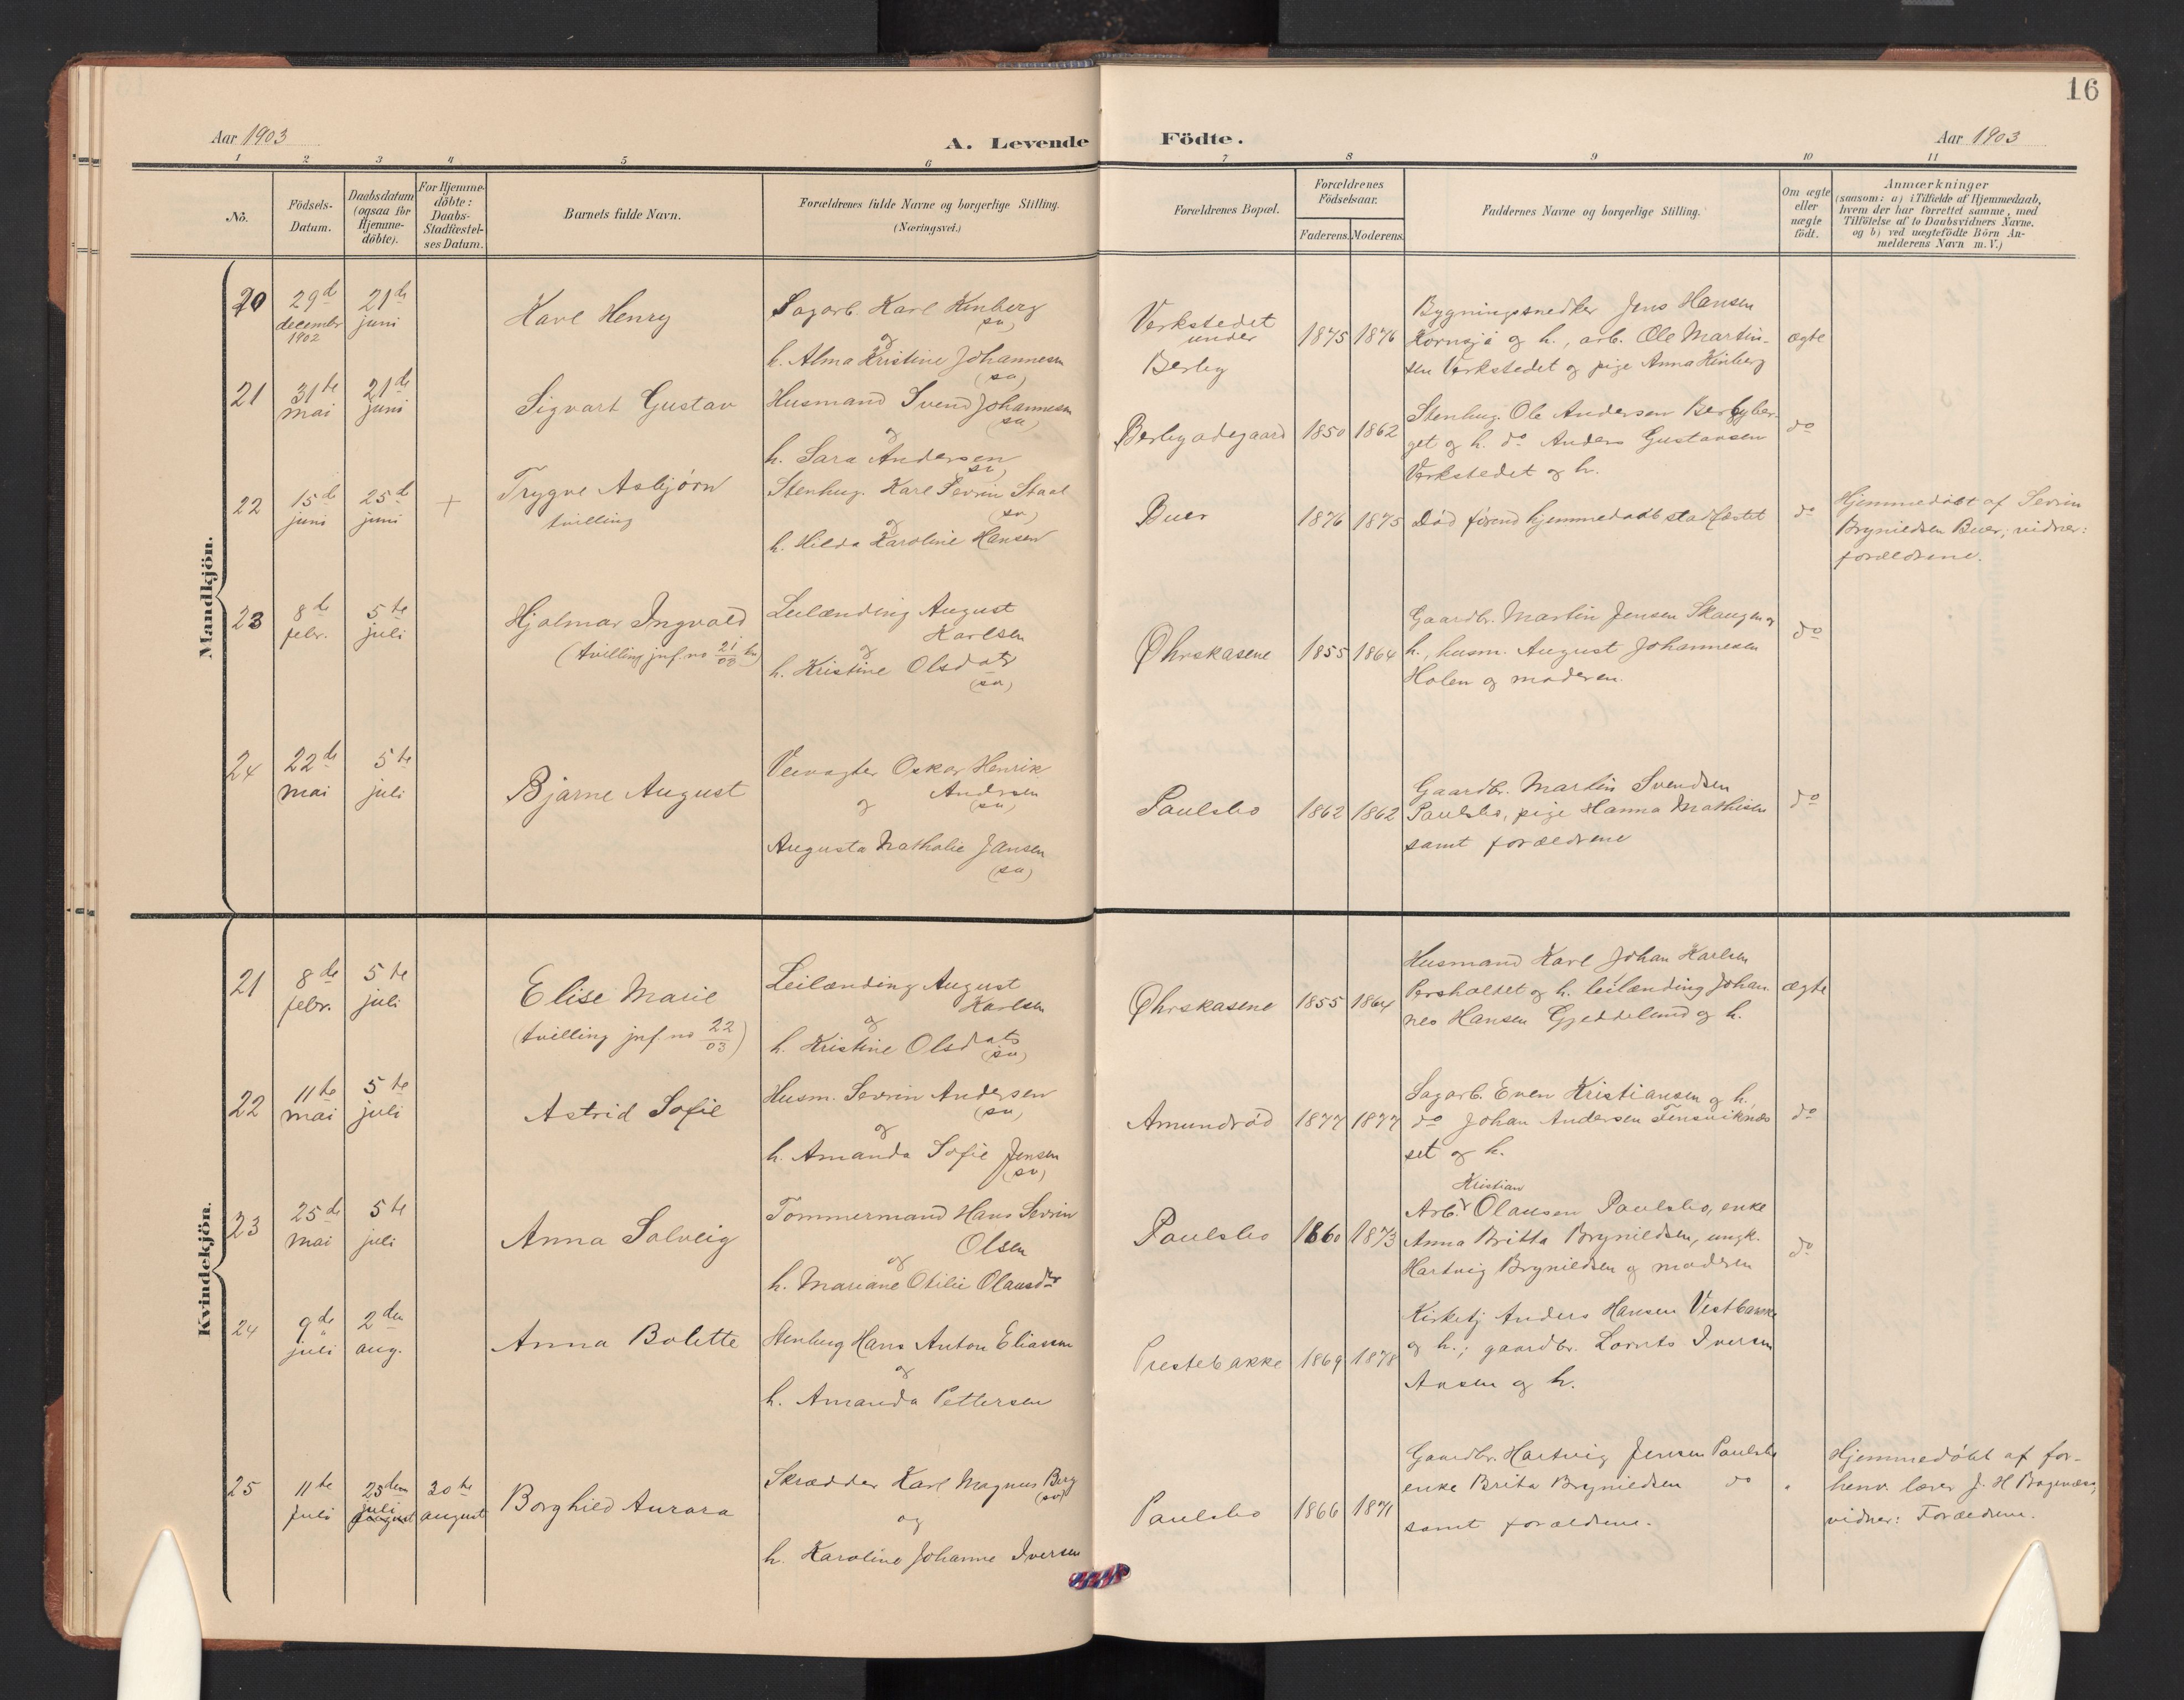 16
Aar 1903
A. Levende Födte.
Aar 1903
1 2 3 4 5 6 7 8 9 10 11
No.
Födsels-
Datum.
Daabsdatum
(ogsaa for
Hjemme-
döbte).
For Hjemme-
döbte:
Daabs-
Stadfæstel-
ses Datum.
Barnets fulde Navn.
Forældrenes fulde Navne og borgerlige Stilling.
(Næringsvei.)
Forældrenes Bopæl.
Forældrenes
Födselsaar.
Faderens. Moderens.
Faddernes Navne og borgerlige Stilling.
Om ægte
eller
uægte
födt.
Anmærkninger
(saasom: a) i Tilfælde af Hjemmedaab,
hvem der har forrettet samme, med
Tilföielse af to Daabsvidners Navne.
og b) ved uægtefödte Börn An-
melderens Navn m. V.)
Mandkjön.
20
29de
decembr
1902
21de
juni
Karl Henry
Sagarb. Karl Kinberg
(sv)
og
h. Alma Kristine Johannesen
(sv)
Verkstedet
under
Berby
1875 1876
Bygningssnedker Jens Hansen
Kornsjø og h., arb. Ole Martin-
sen Verkstedet og pige Anna Kinberg
ægte
21
31te
mai
21de
juni
Sigvart Gustav
Husmand Svend Johannesen
(sv)
og
h. Sara Andersen
(sv)
Berbyødegaard
1850 1862
Stenhug. Ole Andersen Berbyber-
get og h. do Anders Gustavsen
Verkstedet og h.
do
22
15de
juni
25de
juni
+
Trygve Asbjørn
tvilling
Stenhug. Karl Severin Staal
(sv)
og
h. Hilda Karoline Hansen
Buer
1876 1875
Død førend hjemmedaab stadfæstet
do
Hjemmedøbt af Serin
Brynildsen Buer; vidner:
forældrene.
23
8de
febr.
5te
juli
Hjalmar Ingvald
(tvilling jnf. no 21/03 kv)
Leilænding August
Karlsen
og
h. Kristine Olsdatr
(sv)
Øhrskasene
1855 1864
Gaardbr. Martin Jensen Skaugen og
h., husm. August Johannesen
Holen og moderen.
do
24
22de
mai
5te
juli
Bjarne August
Veivogter Oskar Henrik
Andersen
(sv)
og
Augusta Nathalie Jansen
(sv)
Paulsbo
1862 1862
Gaardbr. Martin Svendsen
Paulsbo, pige Hanna Mathisen
samt forældrene
do
Kvindekjön.
21
8de
febr.
5te
juli
Elise Marie
(tvilling jnf. no 22/03)
Leilænding August
Karlsen
og
h. Kristine Olsdatr
(sv)
Øhrskasene
1855 1864
Husmand Karl Johan Karlsen
Persholtet og h. leilænding Johan
nes Hansen Gjeddelund og h.
ægte
22
11te
mai
5te
juli
Astrid Sofie
Husm. Severin Andersen
(sv)
og
h. Amanda Sofie Jensen
(sv)
Amundrød
1877 1877
Sagarb. Even Kristiansen og h.,
do Johan Andersen Tensviknæs
set og h.
do
23
25de
mai
5te
juli
Anna Solveig
Tømmermand Hans Severin
Olsen
og
h. Mariane Otilie Olausdtr
Paulsbo
1860 1873
Kristian
Arb. Olausen Paulsbo, enke
Anna Britta Brynildsen, ungk.
Hartvig Brynildsen og modren
do
24
9de
juli
2den
aug.
Anna Bolette
Stenhug Hans Anton Eliassen
og
h. Amanda Pettersen
Prestebakke
1869 1878
Kirketj Anders Hansen Vestbakke
og h.; gaardbr. Lornts Iversen
Aasen og h.
25
11te
Juli
25den
juli
august
30te
august
Borghild Aurora
Skrædder Karl Magnus Berg
(sv)
og
h. Karoline Johanne Iversen
Paulsbo
1866 1871
Gaardbr. Hartvig Jensen Paulsbo
enke Brita Brynildsen do
samt forældrene.
"
Hjemmedøbt af for-
henv. lærer J. H
vidner: Forældrene.